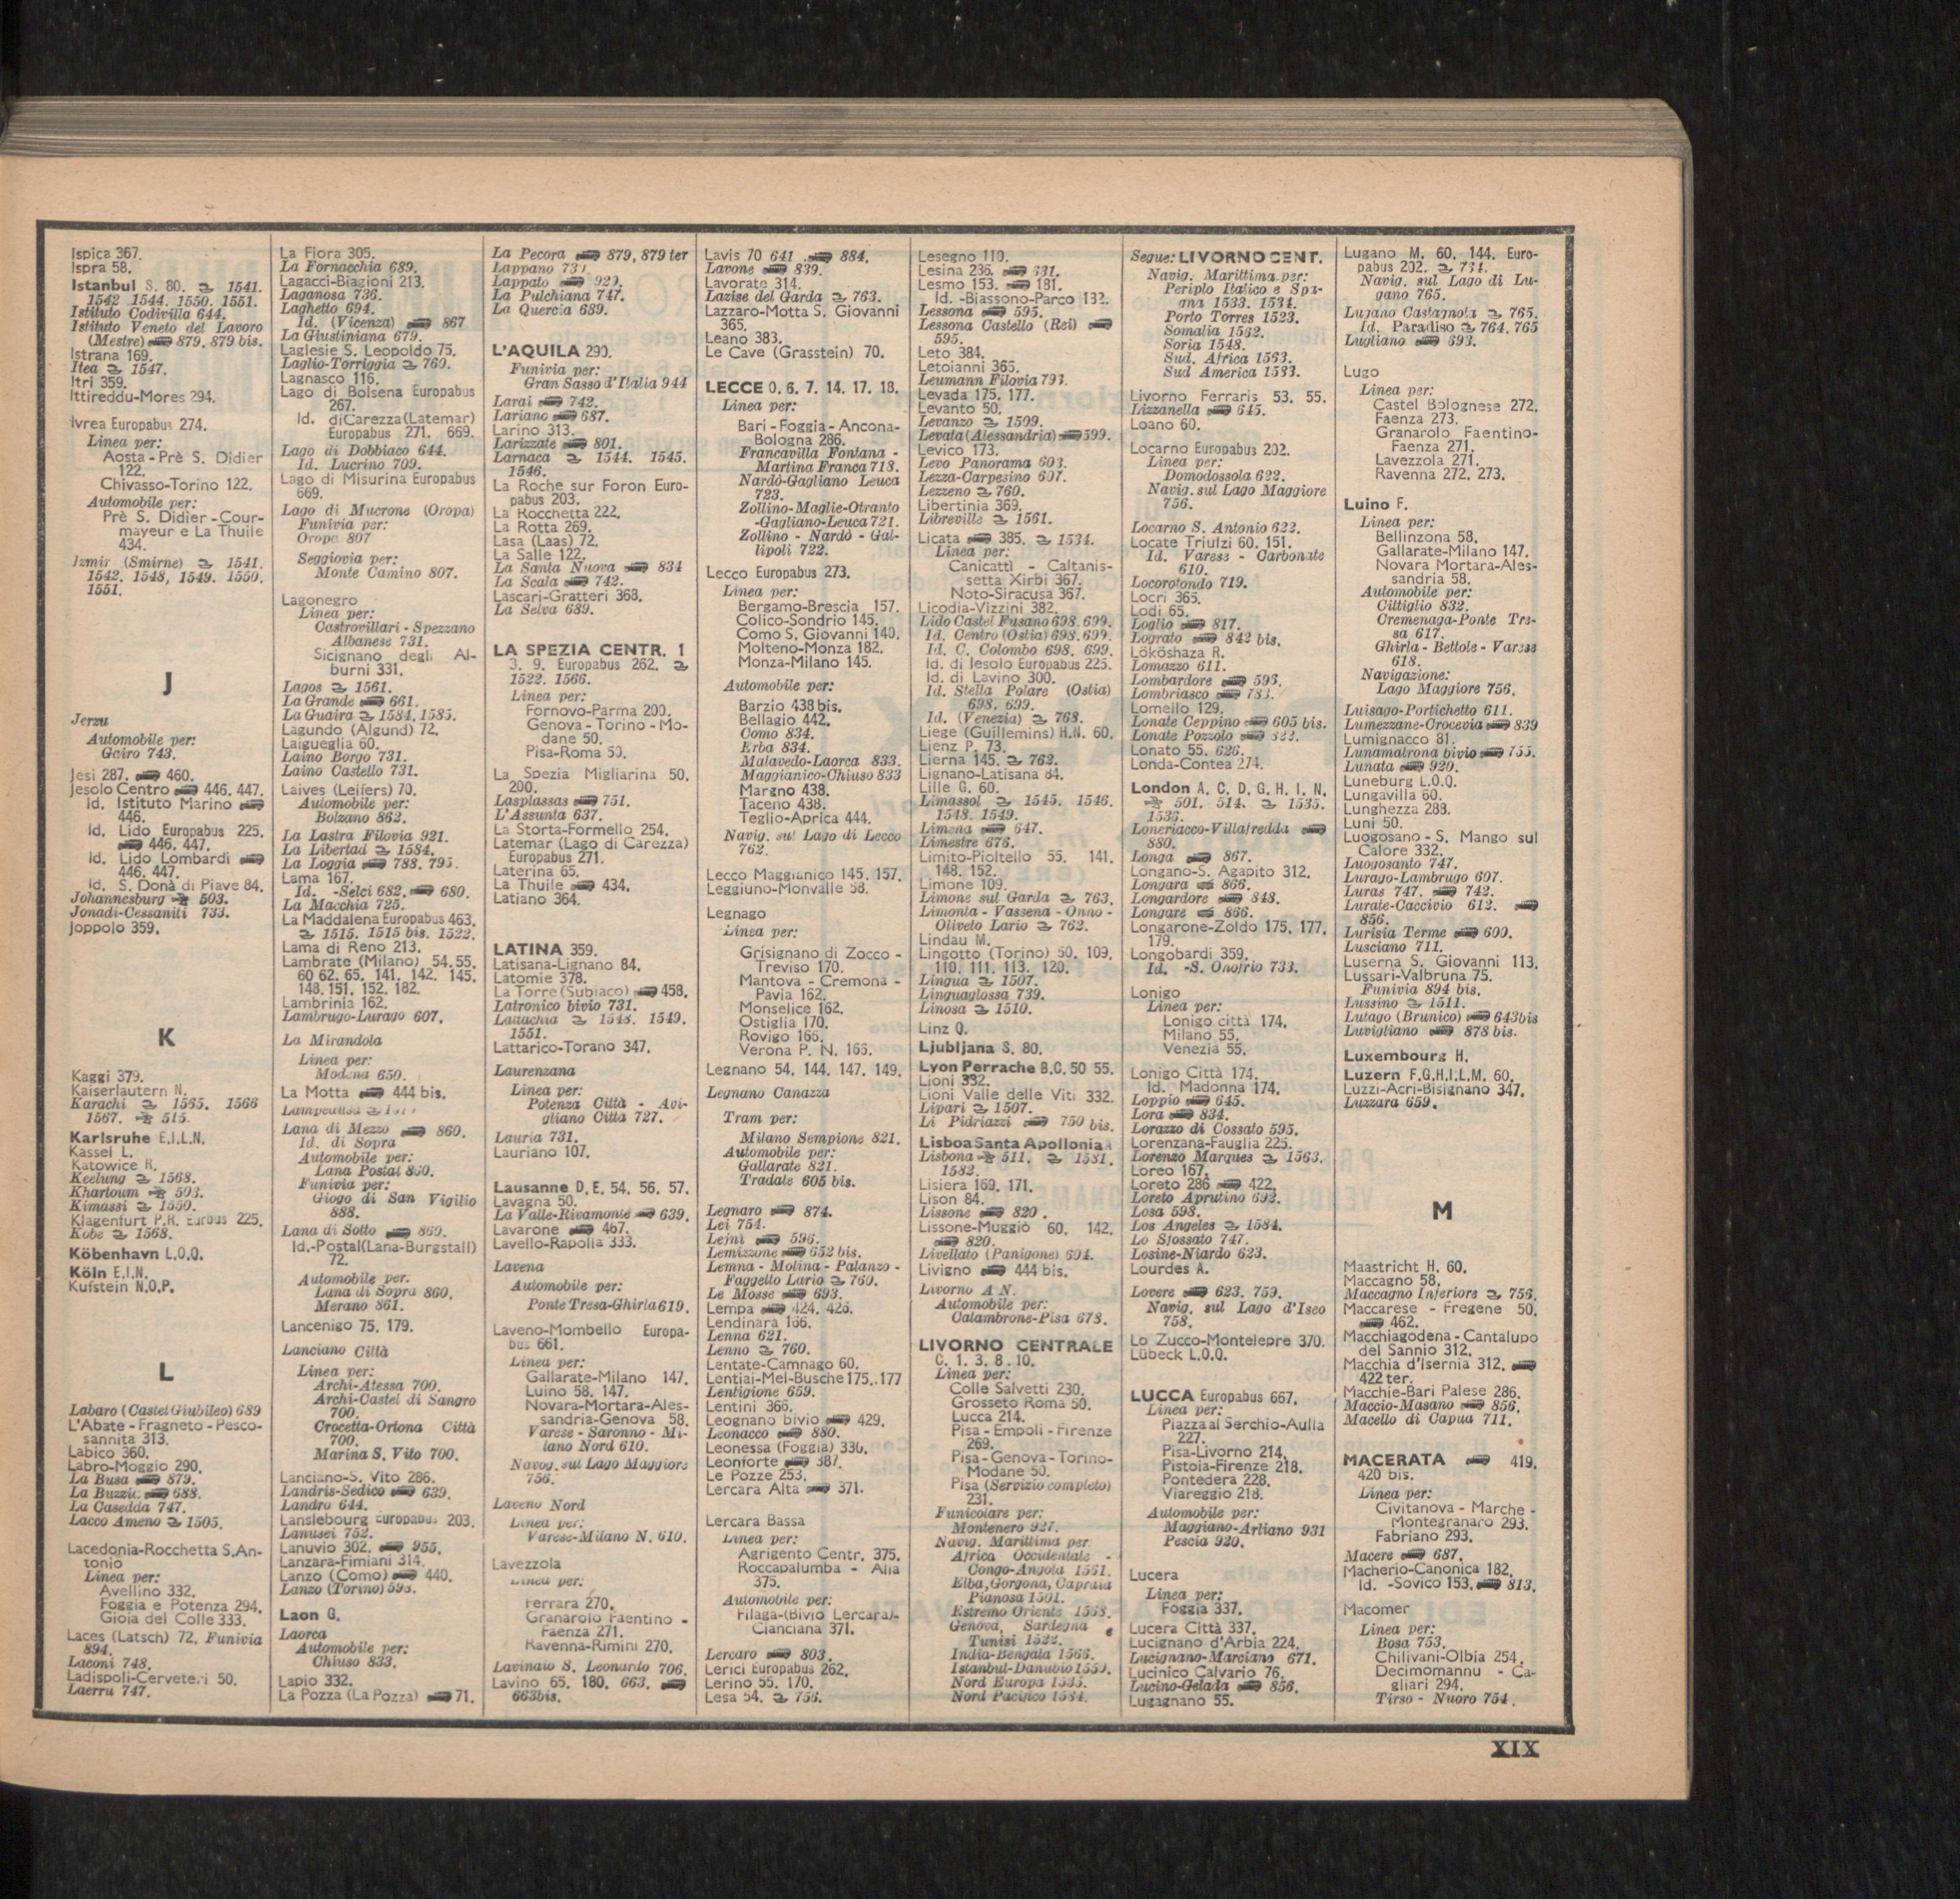 Ispica 367.
Ispra 58.
Istanbul S. 80. 1541.
1542 1544. 1550. 1551.
Istituto Codivilla 644.
Istituto Veneto del Lavoro
(Mestre) 879. 879 bis.
Istrana 169.
Itea 1547.
Itri 359.
Ittireddu-Mores 294.
Ivrea Europabus 274.
Linea per:
Aosta - Prè S. Didier
122.
Chivasso-Torino 122.
Automobile per:
Prè S. Didier - Cour-
mayeur e La Thuile
434.
Izmir (Smirne) 1541.
1542. 1548, 1549. 1550.
1551.
J
Jerzu
Automobile per:
Gairo 743.
Jesi 287. 460.
Jesolo Centro 446. 447.
Id. Istituto Marino
446.
Id. Lido Europabus 225.
446. 447.
Id. Lido Lombardi
446. 447.
Id. S. Donà di Piave 84.
Johannesburg 503.
Jonadi-Cessaniti 733.
Joppolo 359.
K
Kaggi 379.
Kaiserlautern N.
Karachi 1565. 1566
1567. 515.
Karlsruhe E.I.L.N.
Kassel L.
Katowice R.
Keelung 1568.
Khartoum 503.
Kimassi 1550.
Klagenfurt P.R. Eurbus 225.
Kobe 1568.
Köbenhavn L.O.Q.
Köln E.I.N.
Kufstein N.O.P.
L
Labaro (Castel Giubileo) 689
L'Abate - Fragneto - Pesco-
sannita 313.
Labico 360.
Labro-Moggio 290.
La Busa 879.
La Buzzic. 688.
La Casedda 747.
Lacco Ameno 1505.
Lacedonia-Rocchetta S.An-
tonio
Linea per:
Avellino 332.
Foggia e Potenza 294.
Gioia del Colle 333.
Laces (Latsch) 72. Funivia
894.
Laconi 748.
Ladispoli-Cerveteri 50.
Laerru 747.
La Flora 305.
La Fornacchia 689.
Lagacci-Biagioni 213.
Laganosa 736.
Laghetto 694.
Id. (Vicenza) 867
La Giustiniana 679.
Laglesie S. Leopoldo 75.
Laglio-Torriggia 760.
Lagnasco 116.
Lago di Bolsena Europabus
267.
Id. di Carezza (Latemar)
Europabus 271. 669.
Lago di Dobbiaco 644.
Id. Lucrino 709.
Lago di Misurina Europabus
669.
Lago di Mucrone (Oropa)
Funivia per:
Oropa 807
Seggiovia per:
Monte Camino 807.
Lagonegro
Linea per:
Castrovillari - Spezzano
Albanese 731.
Sicignano degli Al-
burni 331.
Lagos 1561.
La Grande 661.
La Guaira 1584. 1585.
Lagundo (Algund) 72.
Laigueglia 60.
Laino Borgo 731.
Laino Castello 731.
Laives (Leifers) 70.
Automobile per:
Bolzano 862.
La Lastra Filovia 921.
La Libertad 1584.
La Loggia 788. 795.
Lama 167.
Id. -Selci 682. 680.
La Macchia 725.
La Maddalena Europabus 463.
1515. 1515 bis. 1522.
Lama di Reno 213.
Lambrate (Milano) 54.55.
60 62. 65. 141. 142. 145.
148. 151. 152. 182.
Lambrinia 162.
Lambrugo-Lurago 607.
La Mirandola
Linea per:
Modena 650.
La Motta 444 bis.
Lampedusa
Lana di Mezzo 860.
Id. di Sopra
Automobile per:
Lana Postal 860.
Funivia per:
Giogo di San Vigilio
888.
Lana di Sotto 860.
Id.-Postal (Lana-Burgstall)
72.
Automobile per.
Lana di Sopra 860.
Merano 861.
Lancenigo 75. 179.
Lanciano Città
Linea per:
Archi-Atessa 700.
Archi-Castel di Sangro
700.
Crocetta-Ortona Città
700.
Marina S. Vito 700.
Lanciano-S. Vito 286.
Landris-Sedico 639.
Landro 644.
Lanslebourg Europabus 203.
Lanusei 752.
Lanuvio 302. 955.
Lanzara-Fimiani 314.
Lanzo (Como) 440.
Lanzo (Torino) 595.
Laon G.
Laorca
Automobile per:
Chiuso 833.
Lapio 332.
La Pozza (La Pozza) 71.
La Pecora 879, 879 ter
Lappano 731
Lappato 929.
La Pulchiana 747.
La Quercia 689.
L'AQUILA 290.
Funivia per:
Gran Sasso d'Italia 944
Larai 742.
Lariano 687.
Larino 313.
Larizzate 801.
Larnaca 1544. 1545.
1546.
La Roche sur Foron Euro-
pabus 203.
La Rocchetta 222.
La Rotta 269.
Lasa (Laas) 72.
La Salle 122.
La Santa Nuova 834
La Scala 742.
Lascari-Gratteri 368.
La Selva 689.
LA SPEZIA CENTR. 1
3. 9. Europabus 262.
1522. 1566.
Linea per:
Fornovo-Parma 200.
Genova - Torino - Mo-
dane 50.
Pisa-Roma 50.
La Spezia Migliarina 50.
200.
Lasplassas 751.
L'Assunta 637.
La Storta-Formello 254.
Latemar (Lago di Carezza)
Europabus 271.
Laterina 65.
La Thuile 434.
Latiano 364.
LATINA 359.
Latisana-Lignano 84.
Latomie 378.
La Torre (Subiaco) 458.
Latronico bivio 731.
Lattachia 1548. 1549.
1551.
Lattarico-Torano 347.
Laurenzana
Linea per:
Potenza Città - Avi-
gliano Città 727.
Lauria 731.
Lauriano 107.
Lausanne D.E. 54. 56. 57.
Lavagna 50.
La Valle-Rivamonte 639.
Lavarone 467.
Lavello-Rapolla 333.
Lavena
Automobile per:
Ponte Tresa-Ghirla 619.
Laveno-Mombello Europa-
bus 661.
Linea per:
Gallarate-Milano 147.
Luino 58. 147.
Novara-Mortara-Ales-
sandria-Genova 58.
Varese - Saronno - Mi-
lano Nord 610.
Navig. sul Lago Maggiore
756.
Laveno Nord
Linea per:
Varese-Milano N. 610.
Lavezzola
Linea per:
Ferrara 270.
Granarolo Faentino -
Faenza 271.
Ravenna-Rimini 270.
Lavinaio S. Leonardo 706.
Lavino 65. 180. 663.
663bis.
Lavis 70 641 . 884.
Lavone 839.
Lavorate 314.
Lazise del Garda 763.
Lazzaro-Motta S. Giovanni
365.
Leano 383.
Le Cave (Grasstein) 70.
LECCE 0. 6. 7. 14. 17. 18.
Linea per:
Bari - Foggia - Ancona-
Bologna 286.
Francavilla Fontana -
Martina Franca 718.
Nardò-Gagliano Leuca
723.
Zollino-Maglie-Otranto
-Gagliano-Leuca 721.
Zollino - Nardò - Gal-
lipoli 722.
Lecco Europabus 273.
Linea per:
Bergamo-Brescia 157.
Colico-Sondrio 145.
Como S. Giovanni 140.
Molteno-Monza 182.
Monza-Milano 145.
Automobile per:
Barzio 438 bis.
Bellagio 442.
Como 834.
Erba 834.
Malavedo-Laorca 833.
Maggianico-Chiuso 833
Margno 438.
Taceno 438.
Teglio-Aprica 444.
Navig. sul Lago di Lecco
762.
Lecco Maggianico 145. 157.
Leggiuno-Monvalle 58.
Legnago
Linea per:
Grisignano di Zocco -
Treviso 170.
Mantova - Cremona -
Pavia 162.
Monselice 162.
Ostiglia 170.
Rovigo 166.
Verona P. N. 166.
Legnano 54. 144. 147. 149.
Legnano Canazza
Tram per:
Milano Sempione 821.
Automobile per:
Gallarate 821.
Tradate 605 bis.
Legnaro 874.
Lei 754.
Lejnì 596.
Lemizzone 652 bis.
Lemna - Molina - Palanzo -
Faggetto Lario 760.
Le Mosse 693.
Lempa 424. 426.
Lendinara 166.
Lenna 621.
Lenno 760.
Lentate-Camnago 60.
Lentiai-Mel-Busche 175..177
Lentigione 659.
Lentini 366.
Leognano bivio 429.
Leonacco 880.
Leonessa (Foggia) 336.
Leonforte 387.
Le Pozze 253.
Lercara Alta 371.
Lercara Bassa
Linea per:
Agrigento Centr. 375.
Roccapalumba - Alia
375.
Automobile per:
Filaga-(Bivio Lercara)-
Cianciana 371.
Lercaro 803.
Lerici Europabus 262.
Lerino 55. 170.
Lesa 54. 756.
Lesegno 110.
Lesina 286. 331.
Lesmo 153. 181.
Id. -Biassono-Parco 132.
Lessona 595.
Lessona Castello (Rei)
595.
Leto 384.
Letoianni 365.
Leumann Filovia 793.
Levada 175. 177.
Levanto 50.
Levanzo 1509.
Levata (Alessandria) 599.
Levico 173.
Levo Panorama 603.
Lezza-Carpesino 607.
Lezzeno 760.
Libertinia 369.
Libreville 1561.
Licata 385. 1534.
Linea per:
Canicattì - Caltanis-
setta Xirbi 367.
Noto-Siracusa 367.
Licodia-Vizzini 382.
Lido Castel Fusano 698. 699.
Id. Centro (Ostia) 698. 699.
Id. C. Colombo 698. 699.
Id. di Iesolo Europabus 225.
Id. di Lavino 300.
Id. Stella Polare (Ostia)
698. 699.
Id. (Venezia) 768.
Liege (Guillemins) H.N. 60.
Lienz P. 73.
Lierna 145. 762.
Lignano-Latisana 84.
Lille G. 60.
Limassol 1545. 1546.
1548. 1549.
Limena 647.
Limestre 676.
Limito-Pioltello 55. 141.
148. 152.
Limone 109.
Limone sul Garda 763.
Limonta - Vassena - Onno -
Oliveto Lario 762.
Lindau M.
Lingotto (Torino) 50. 109.
110. 111. 113. 120.
Lingua 1507.
Linguaglossa 739.
Linosa 1510.
Linz Q.
Ljubljana S. 80.
Lyon Perrache B.C. 50 55.
Lioni 332.
Lioni Valle delle Viti 332.
Lipari 1507.
Li Pidriazzi 750 bis.
Lisboa Santa Apollonia
Lisbona 511. 1581.
1582.
Lisiera 169. 171.
Lison 84.
Lissone 820 .
Lissone-Muggiò 60. 142.
820.
Livellato (Panigone) 694.
Livigno 444 bis.
Livorno A N.
Automobile per:
Calambrone-Pisa 678.
LIVORNO CENTRALE
C. 1. 3. 8 . 10.
Linea per:
Colle Salvetti 230.
Grosseto Roma 50.
Lucca 214.
Pisa - Empoli - Firenze
269.
Pisa - Genova - Torino-
Modane 50.
Pisa (Servizio completo)
231.
Funicolare per:
Montenero 927.
Navig. Marittima per
Africa Occidentale -
Congo-Angola 1561.
Elba, Gorgona, Capraia
Pianosa 1501.
Estremo Oriente 1568.
Genova, Sardegna
Tunisi 1522.
India-Bengala 1566.
Istanbul-Danubio 1550.
Nord Europa 1535.
Nord Pacifico 1584.
Segue: LIVORNO CENT.
Navig. Marittima per:
Periplo Italico e Spa-
gna 1533. 1534.
Porto Torres 1523.
Somalia 1562.
Soria 1548.
Sud. Africa 1563.
Sud America 1583.
Livorno Ferraris 53. 55.
Lizzanella 645.
Loano 60.
Locarno Europabus 202.
Linea per:
Domodossola 622.
Navig. sul Lago Maggiore
756.
Locarno S. Antonio 622.
Locate Triulzi 60. 151.
Id. Varese - Carbonate
610.
Locorotondo 719.
Locri 365.
Lodi 65.
Loglio 817.
Lograto 842 bis.
Lököshaza R.
Lomazzo 611.
Lombardore 596.
Lombriasco 783.
Lomello 129.
Lonate Ceppino 605 bis.
Lonate Pozzolo 822.
Lonato 55. 626.
Londa-Contea 274.
London A. C. D. G. H. I. N.
501. 514. 1535.
1536.
Loneriacco-Villafredda
880.
Longa 867.
Longano-S. Agapito 312.
Longara 866.
Longardore 848.
Longare 866.
Longarone-Zoldo 175. 177.
179.
Longobardi 359.
Id. -S. Onofrio 733.
Lonigo
Linea per:
Lonigo città 174.
Milano 55.
Venezia 55.
Lonigo Città 174.
Id. Madonna 174.
Loppio 645.
Lora 834.
Lorazzo di Cossato 595.
Lorenzana-Fauglia 225.
Lorenzo Marques 1563.
Loreo 167.
Loreto 286 422.
Loreto Aprutino 692.
Losa 598.
Los Angeles 1584.
Lo Sfossato 747.
Losine-Niardo 623.
Lourdes A.
Lovere 623. 759.
Navig. sul Lago d'Iseo
758.
Lo Zucco-Montelepre 370.
Lübeck L.O.Q.
LUCCA Europabus 667.
Linea per:
Piazza al Serchio-Aulla
227.
Pisa-Livorno 214.
Pistoia-Firenze 218.
Pontedera 228.
Viareggio 218.
Automobile per:
Maggiano-Arliano 931
Pescia 920.
Lucera
Linea per:
Foggia 337.
Lucera Città 337.
Lucignano d'Arbia 224.
Lucignano-Marciano 671.
Lucinico Calvario 76.
Lucino-Gelada 856.
Lugagnano 55.
Lugano M. 60. 144. Euro-
pabus 202. 764.
Navig. sul Lago di Lu-
gano 765.
Lugano Castagnola 765.
Id. Paradiso 764. 765
Lugliano 693.
Lugo
Linea per:
Castel Bolognese 272.
Faenza 273.
Granarolo Faentino-
Faenza 271.
Lavezzola 271.
Ravenna 272. 273.
Luino F.
Linea per:
Bellinzona 58.
Gallarate-Milano 147.
Novara Mortara-Ales-
sandria 58.
Automobile per:
Cittiglio 832.
Cremenaga-Ponte Tre-
sa 617.
Ghirla - Bettole - Varese
618.
Navigazione:
Lago Maggiore 756.
Luisago-Portichetto 611.
Lumezzane-Crocevia 839
Lumignacco 81.
Lunamatrona bivio 755.
Lunata 920.
Luneburg L.O.Q.
Lungavilla 60.
Lunghezza 288.
Luni 50.
Luogosano - S. Mango sul
Calore 332.
Luogosanto 747.
Lurago-Lambrugo 607.
Luras 747. 742.
Lurate-Caccivio 612.
856.
Lurisia Terme 600.
Lusciano 711.
Luserna S. Giovanni 113.
Lussari-Valbruna 75.
Funivia 894 bis.
Lussino 1511.
Lutago (Brunico) 643bis
Luvigliano 878 bis.
Luxembourg H.
Luzern F.G.H.I.L.M. 60.
Luzzi-Acri-Bisignano 347.
Luzzara 659.
M
Maastricht H. 60.
Maccagno 58.
Maccagno Inferiore 756.
Maccarese - Fregene 50.
462.
Macchiagodena - Cantalupo
del Sannio 312.
Macchia d'Isernia 312.
422 ter.
Macchie-Bari Palese 286.
Maccio-Masano 856.
Macello di Capua 711.
MACERATA 419.
420 bis.
Linea per:
Civitanova - Marche -
Montegranaro 293.
Fabriano 293.
Macere 687.
Macherio-Canonica 182.
Id. -Sovico 153. 813.
Macomer
Linea per:
Bosa 753.
Chilivani-Olbia 254.
Decimomannu - Ca-
gliari 294.
Tirso - Nuoro 754 .
XIX